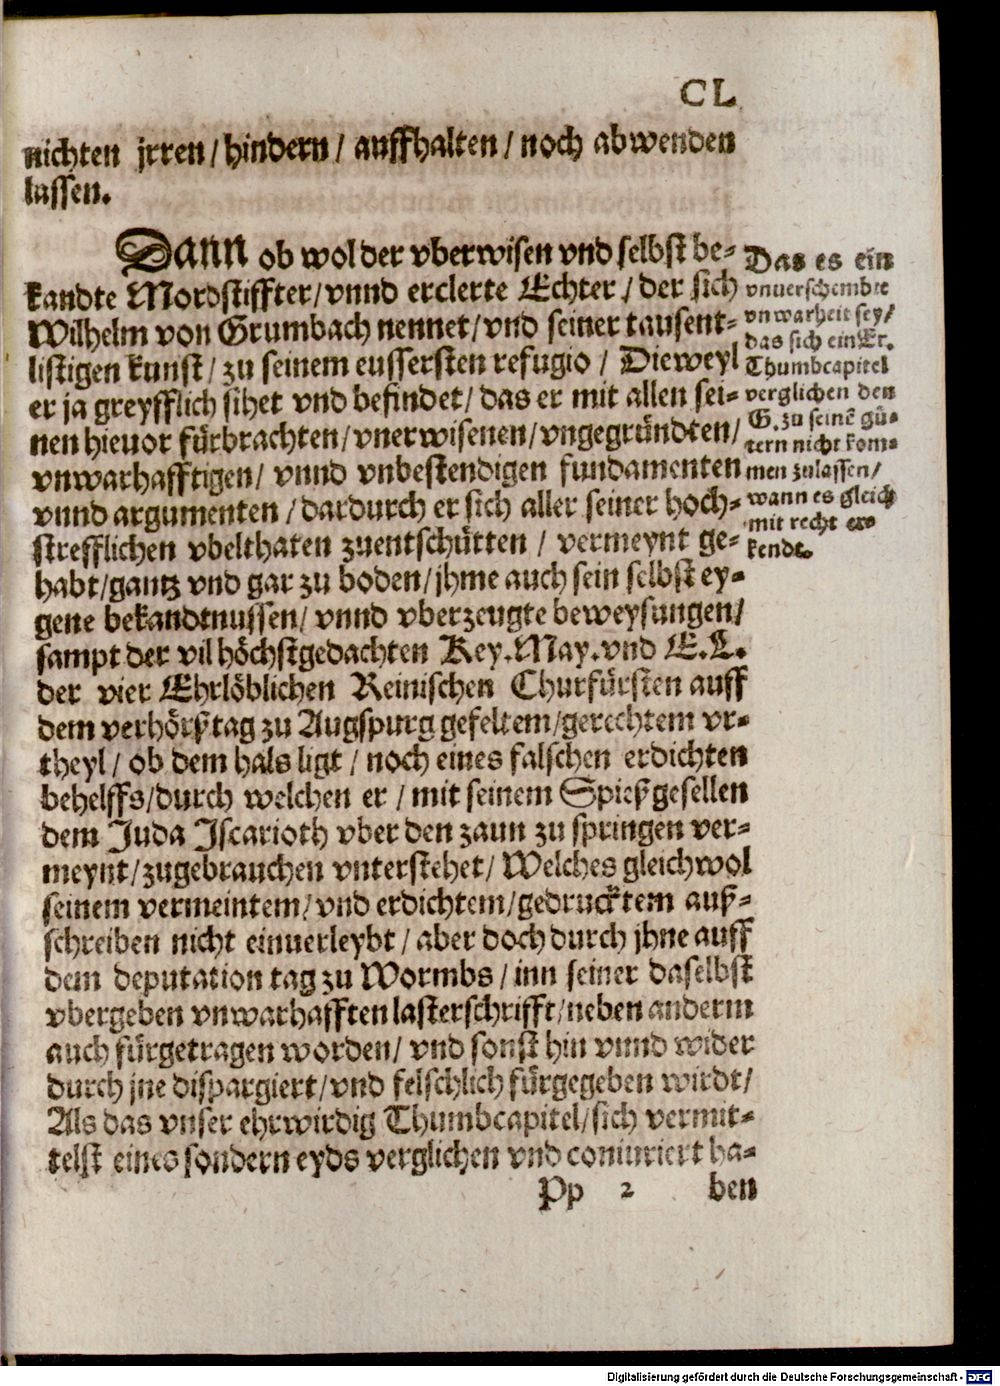 CL
nichten jrren / hindern / auffhalten / noch abwenden
lassen.
Dann ob wol der vberwisen vnd selbst be-
kandte Mordstiffter / vnnd erclerte Echter / der sich
Wilhelm von Grumbach nennet / vnd seiner tausent-
listigen kunst / zu seinem eussersten refugio / Dieweyl
er ja greyfflich sihet vnd befindet / das er mit allen sei-
nen hieuor fürbrachten / vnerwisenen / vngegründten /
vnwarhafftigen / vnnd vnbestendigen fundamenten
vnnd argumenten / dardurch er sich aller seiner hoch-
strefflichen vbelthaten zuentschütten / vermeynt ge-
habt / gantz vnd gar zu boden / jhme auch sein selbst ey-
gene bekandtnussen / vnnd vberzeugte beweysungen /
sampt der vil höchstgedachten Key. May. vnd E. L.
der vier Ehrlöblichen Reinischen Churfürsten auff
dem verhörßtag zu Augspurg gefeltem / gerechtem vr-
theyl / ob dem hals ligt / noch eines falschen erdichten
behelffs / durch welchen er / mit seinem Spießgesellen
dem Juda Jscarioth vber den zaun zu springen ver-
meynt / zugebrauchen vnterstehet / Welches gleichwol
seinem vermeintem / vnd erdichtem / gedrucktem auß-
schreiben nicht einuerleybt / aber doch durch jhne auff
dem deputation tag zu Wormbs / inn seiner daselbst
vbergeben vnwarhafften lasterschrifft / neben anderm
auch fürgetragen worden / vnd sonst hin vnnd wider
durch jne dispargiert / vnd felschlich fürgegeben wirdt /
Als das vnser ehrwirdig Thumbcapitel / sich vermit-
telst eines sondern eyds verglichen vnd coniuriert ha-
Das es ein
vnuerschembte
vnwarheit sey /
das sich ein Er.
Thumbcapitel
verglichen den
G. zu seinē gü-
tern nicht kom-
men zulassen /
wann es gleich
mit recht er-
kendt.
Pp 2 ben
Digitalisierung gefördert durch die Deutsche Forschungsgemeinschaft - DFG